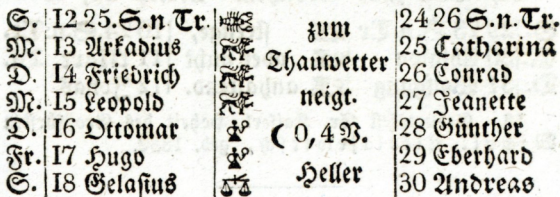 S. 12 25. S. n. Tr. zum 24 26 S. n. Tr.
M. 13 Arkadius Thauwetter 25 Catharina
D. 14 Friedrich neigt. 26 Conrad
M. 15 Leopold 27 Jeanette
D. 16 Ottomar ☾ 0,4 V. 28 Günther
Fr. 17 Hugo Heller 29 Eberhard
S. 18 Gelasius 30 Andreas